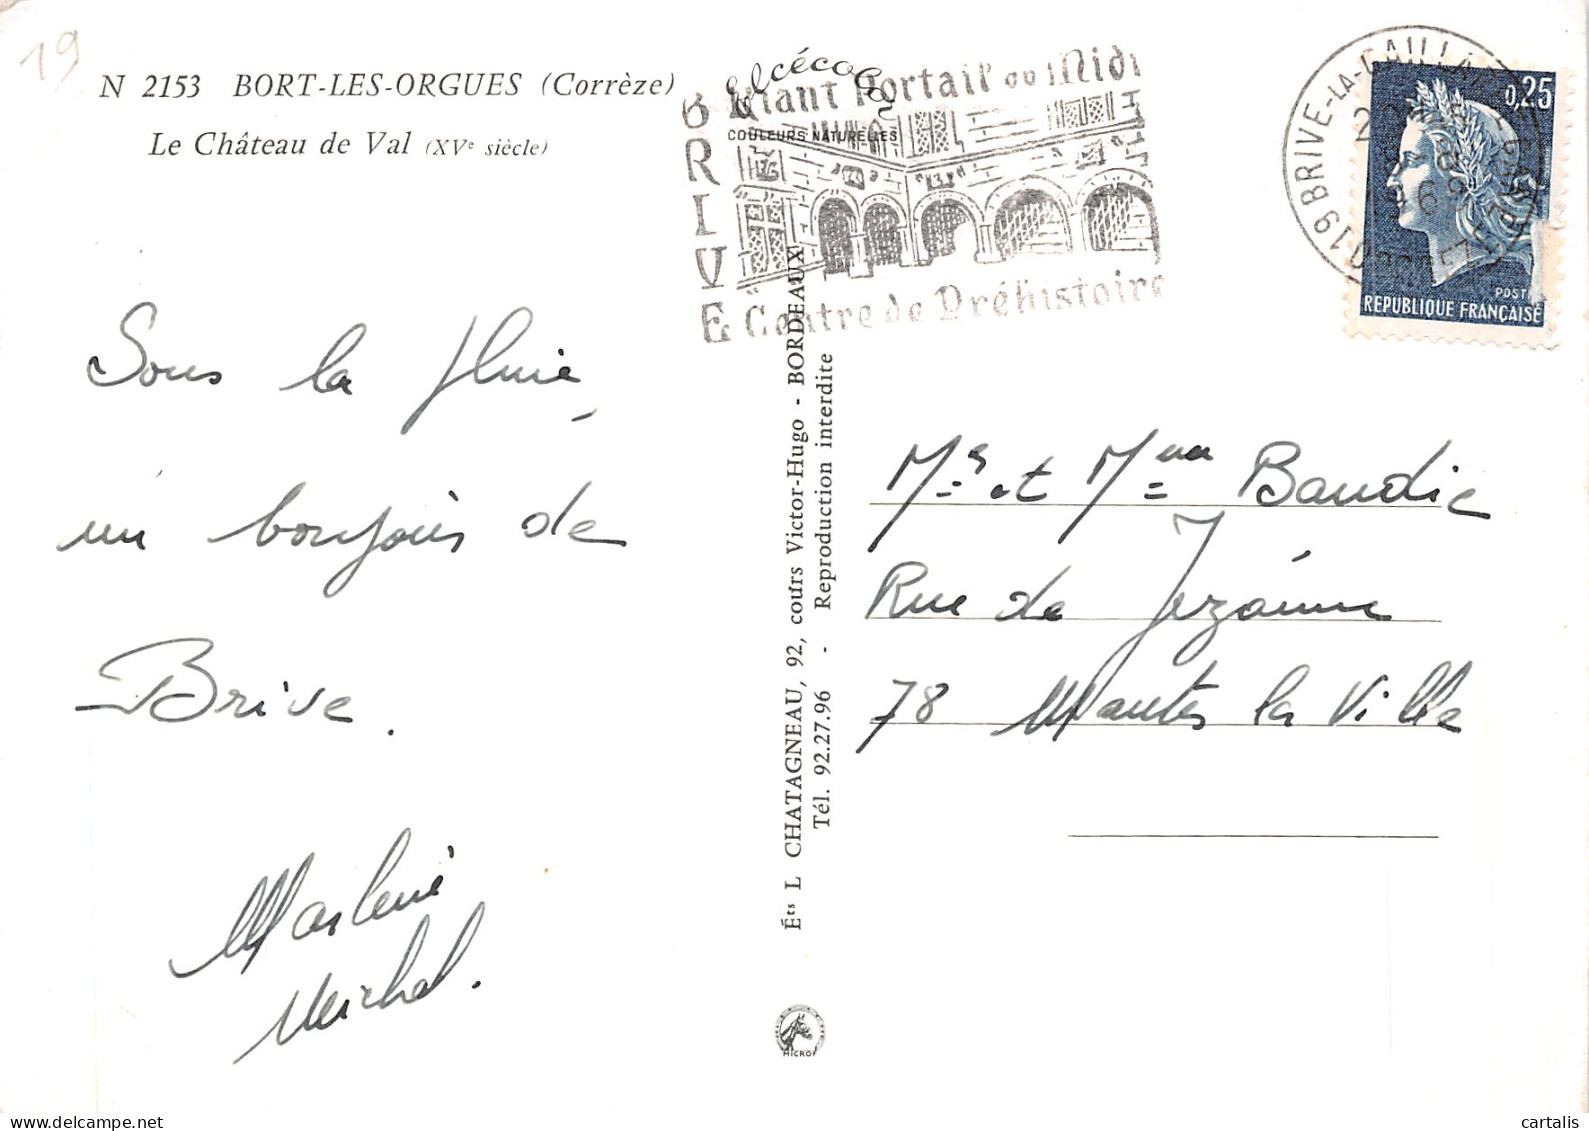 19
N 2153 BORT-LES-ORGUES (Corrèze)
Le Château de Val (XVe siècle)
elcécolor
COULEURS NATURELLES
BRIVE
Riant Portail du Midi
& Centre de Préhistoire
19 BRIVE-LA-GAILLARDE
0,25
POSTES
REPUBLIQUE FRANÇAISE
Sous la pluie
un bonjour de
Brive.
Marlène
Michel.
Éts L CHATAGNEAU, 92, cours Victor-Hugo - BORDEAUX
Tél. 92.27.96 - Reproduction interdite
Mr et Mme Baudic
Rue de
78 Mantes la Ville
MICRO
cartalis